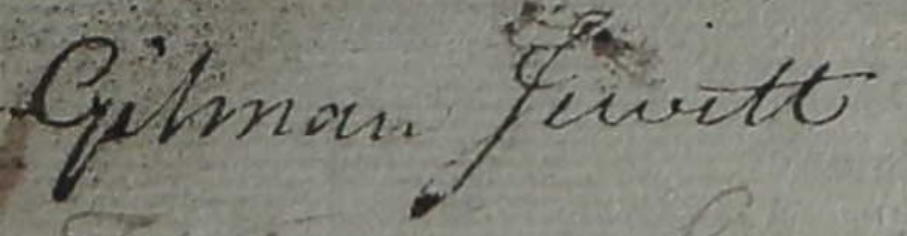 Gilman Jewett